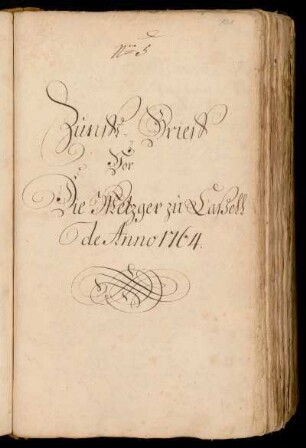 No 5
Zunft-Brieff
Vor
Die Metzger zu Caßell
de Anno 1764.